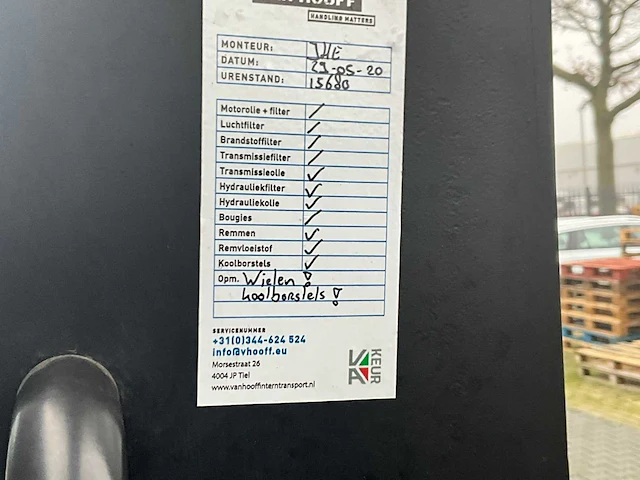 HOOFF
HANDLING MATTERS
MONTEUR: JHE
DATUM: 29-05-20
URENSTAND: 15680
Motorolie + filter /
Luchtfilter /
Brandstoffilter /
Transmissiefilter /
Transmissieolie ✓
Hydrauliekfilter ✓
Hydrauliekolie ✓
Bougies /
Remmen ✓
Remvloeistof ✓
Koolborstels ✓
Opm. Wielen!
koolborstels!
SERVICENUMMER
+31(0)344-624 524
info@vhooff.eu
Morsestraat 26
4004 JP Tiel
www.vanhooffinterntransport.nl
KEUR